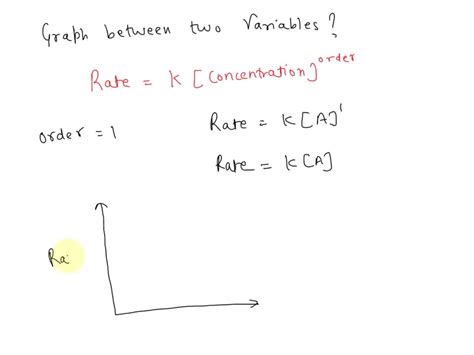 Graph between two Variables?
Rate = K [Concentration]^order
order = 1
Rate = K [A]^1
Rate = K [A]
Ra